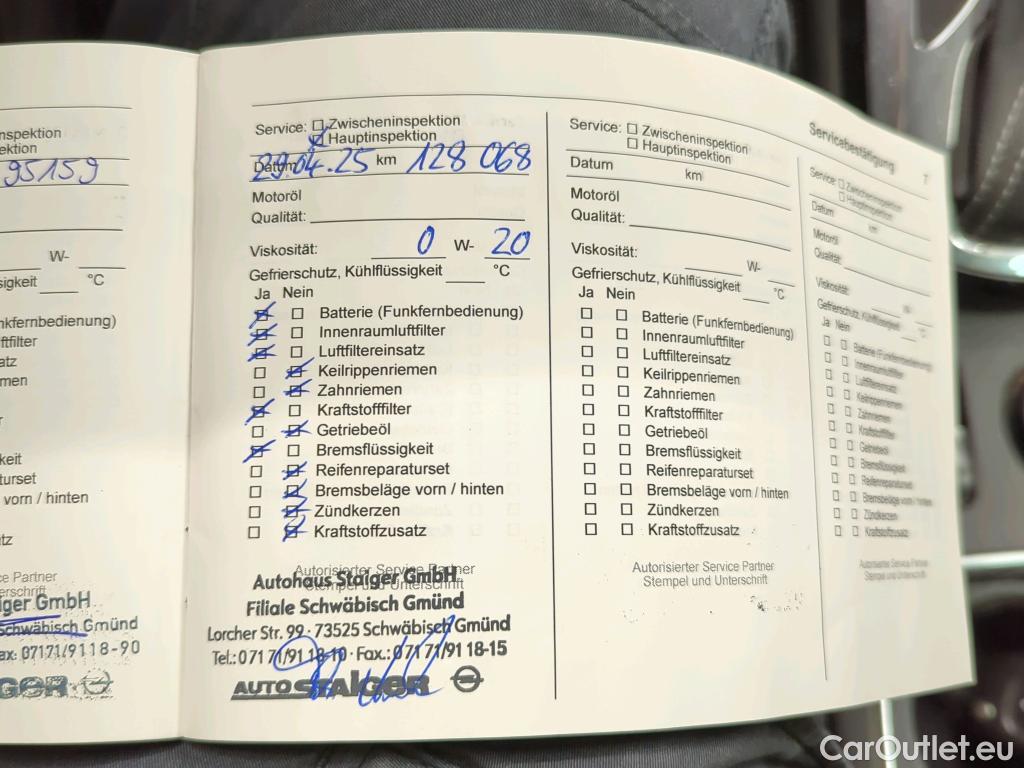 nspektion
ektion
95159
W-
sigkeit °C
nkfernbedienung)
ftfilter
atz
men
r
keit
urset
vorn / hinten
tz
ce Partner
erschrift
iger GmbH
Schwäbisch Gmünd
ax: 07171/9118-90
Service: Zwischeninspektion
Hauptinspektion
Datum 29.04.25 km 128 068
Motoröl
Qualität:
Viskosität: 0 W- 20
Gefrierschutz, Kühlflüssigkeit °C
Ja Nein
Batterie (Funkfernbedienung)
Innenraumluftfilter
Luftfiltereinsatz
Keilrippenriemen
Zahnriemen
Kraftstofffilter
Getriebeöl
Bremsflüssigkeit
Reifenreparaturset
Bremsbeläge vorn / hinten
Zündkerzen
Kraftstoffzusatz
Autorisierter Service Partner
Stempel und Unterschrift
Autohaus Staiger GmbH
Filiale Schwäbisch Gmünd
Lorcher Str. 99 · 73525 Schwäbisch Gmünd
Tel.: 07171/9118-10 · Fax.: 07171/9118-15
AUTO STAIGER
Service: Zwischeninspektion
Hauptinspektion
Datum km
Motoröl
Qualität:
Viskosität: W-
Gefrierschutz, Kühlflüssigkeit °C
Ja Nein
Batterie (Funkfernbedienung)
Innenraumluftfilter
Luftfiltereinsatz
Keilrippenriemen
Zahnriemen
Kraftstofffilter
Getriebeöl
Bremsflüssigkeit
Reifenreparaturset
Bremsbeläge vorn / hinten
Zündkerzen
Kraftstoffzusatz
Autorisierter Service Partner
Stempel und Unterschrift
Servicebestätigung 7
Service: Zwischeninspektion
Hauptinspektion
Datum km
Motoröl
Qualität:
Viskosität: W-
Gefrierschutz, Kühlflüssigkeit °C
Ja Nein
Batterie (Funkfernbedienung)
Innenraumluftfilter
Luftfiltereinsatz
Keilrippenriemen
Zahnriemen
Kraftstofffilter
Getriebeöl
Bremsflüssigkeit
Reifenreparaturset
Bremsbeläge vorn / hinten
Zündkerzen
Kraftstoffzusatz
Autorisierter Service Partner
Stempel und Unterschrift
CarOutlet.eu